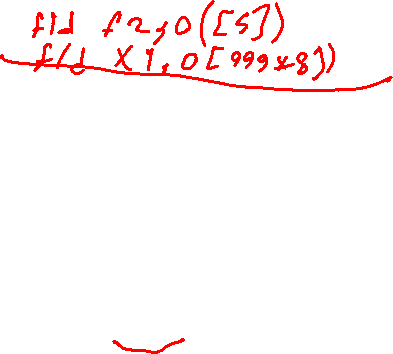 fld f2,0([5])
fld X1,0[999*8])